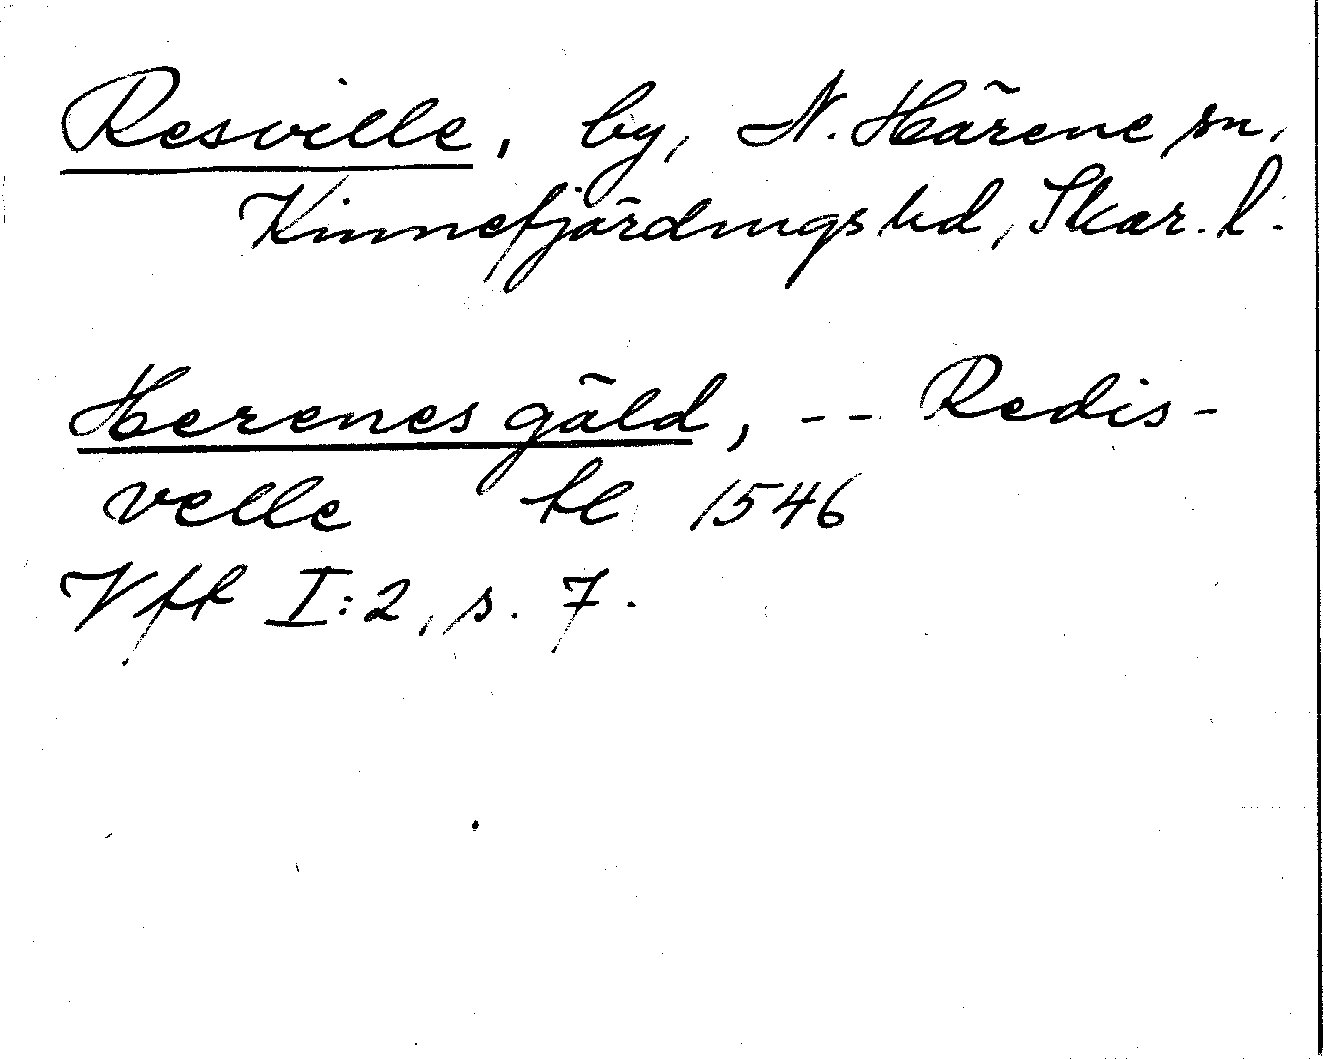 Resville, by, N. Härene sn,
Kinnefjärdings hd, Skar. l.
Herenes gäld, -- Redis-
velle fl 1546
Vff I:2, s. 7.